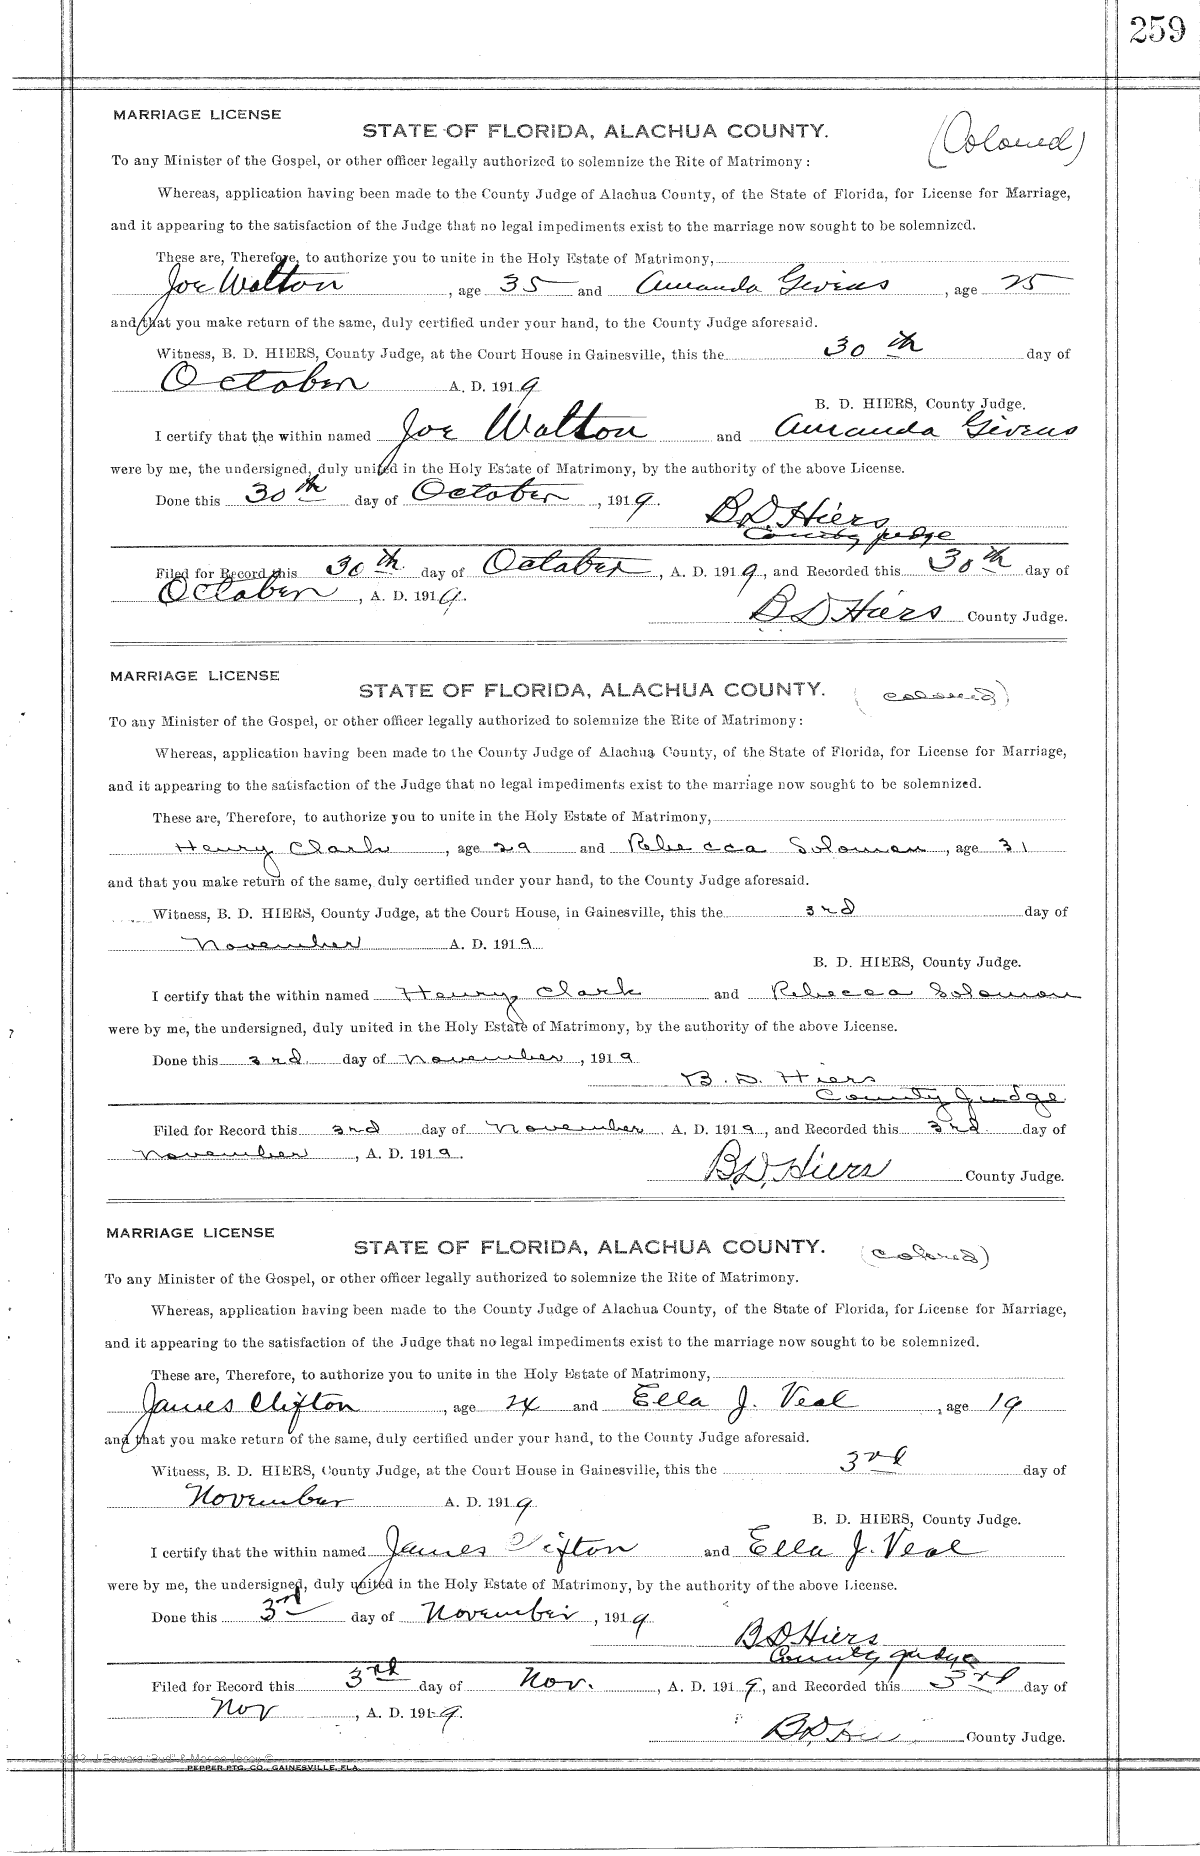 259
MARRIAGE LICENSE
STATE OF FLORIDA, ALACHUA COUNTY.
(Colored)
To any Minister of the Gospel, or other officer legally authorized to solemnize the Rite of Matrimony:
Whereas, application having been made to the County Judge of Alachua County, of the State of Florida, for License for Marriage,
and it appearing to the satisfaction of the Judge that no legal impediments exist to the marriage now sought to be solemnized.
These are, Therefore, to authorize you to unite in the Holy Estate of Matrimony,
Joe Walton, age 35 and Amanda Givens, age 25
and that you make return of the same, duly certified under your hand, to the County Judge aforesaid.
Witness, B. D. HIERS, County Judge, at the Court House in Gainesville, this the 30th day of
October A. D. 1919
B. D. HIERS, County Judge.
I certify that the within named Joe Walton and Amanda Givens
were by me, the undersigned, duly united in the Holy Estate of Matrimony, by the authority of the above License.
Done this 30th day of October, 1919.
B D Hiers
County Judge
Filed for Record this 30th day of October, A. D. 1919, and Recorded this 30th day of
October, A. D. 1919.
B D Hiers County Judge.
MARRIAGE LICENSE
STATE OF FLORIDA, ALACHUA COUNTY.
(colored)
To any Minister of the Gospel, or other officer legally authorized to solemnize the Rite of Matrimony:
Whereas, application having been made to the County Judge of Alachua County, of the State of Florida, for License for Marriage,
and it appearing to the satisfaction of the Judge that no legal impediments exist to the marriage now sought to be solemnized.
These are, Therefore, to authorize you to unite in the Holy Estate of Matrimony,
Henry Clark, age 29 and Rebecca Soloman, age 31
and that you make return of the same, duly certified under your hand, to the County Judge aforesaid.
Witness, B. D. HIERS, County Judge, at the Court House, in Gainesville, this the 3rd day of
November A. D. 1919
B. D. HIERS, County Judge.
I certify that the within named Henry Clark and Rebecca Soloman
were by me, the undersigned, duly united in the Holy Estate of Matrimony, by the authority of the above License.
Done this 3rd day of November, 1919
B. D. Hiers
County Judge
Filed for Record this 3rd day of November A. D. 1919, and Recorded this 3rd day of
November, A. D. 1919.
B. D. Hiers County Judge.
MARRIAGE LICENSE
STATE OF FLORIDA, ALACHUA COUNTY.
(colored)
To any Minister of the Gospel, or other officer legally authorized to solemnize the Rite of Matrimony.
Whereas, application having been made to the County Judge of Alachua County, of the State of Florida, for License for Marriage,
and it appearing to the satisfaction of the Judge that no legal impediments exist to the marriage now sought to be solemnized.
These are, Therefore, to authorize you to unite in the Holy Estate of Matrimony,
James Clifton, age 24 and Ella J. Veal, age 19
and that you make return of the same, duly certified under your hand, to the County Judge aforesaid.
Witness, B. D. HIERS, County Judge, at the Court House in Gainesville, this the 3rd day of
November A. D. 1919
B. D. HIERS, County Judge.
I certify that the within named James Clifton and Ella J. Veal
were by me, the undersigned, duly united in the Holy Estate of Matrimony, by the authority of the above License.
Done this 3rd day of November, 1919
B D Hiers
County Judge
Filed for Record this 3rd day of Nov., A. D. 1919, and Recorded this 3rd day of
Nov, A. D. 1919.
B. D. Hiers County Judge.
PEPPER PTG. CO., GAINESVILLE, FLA.